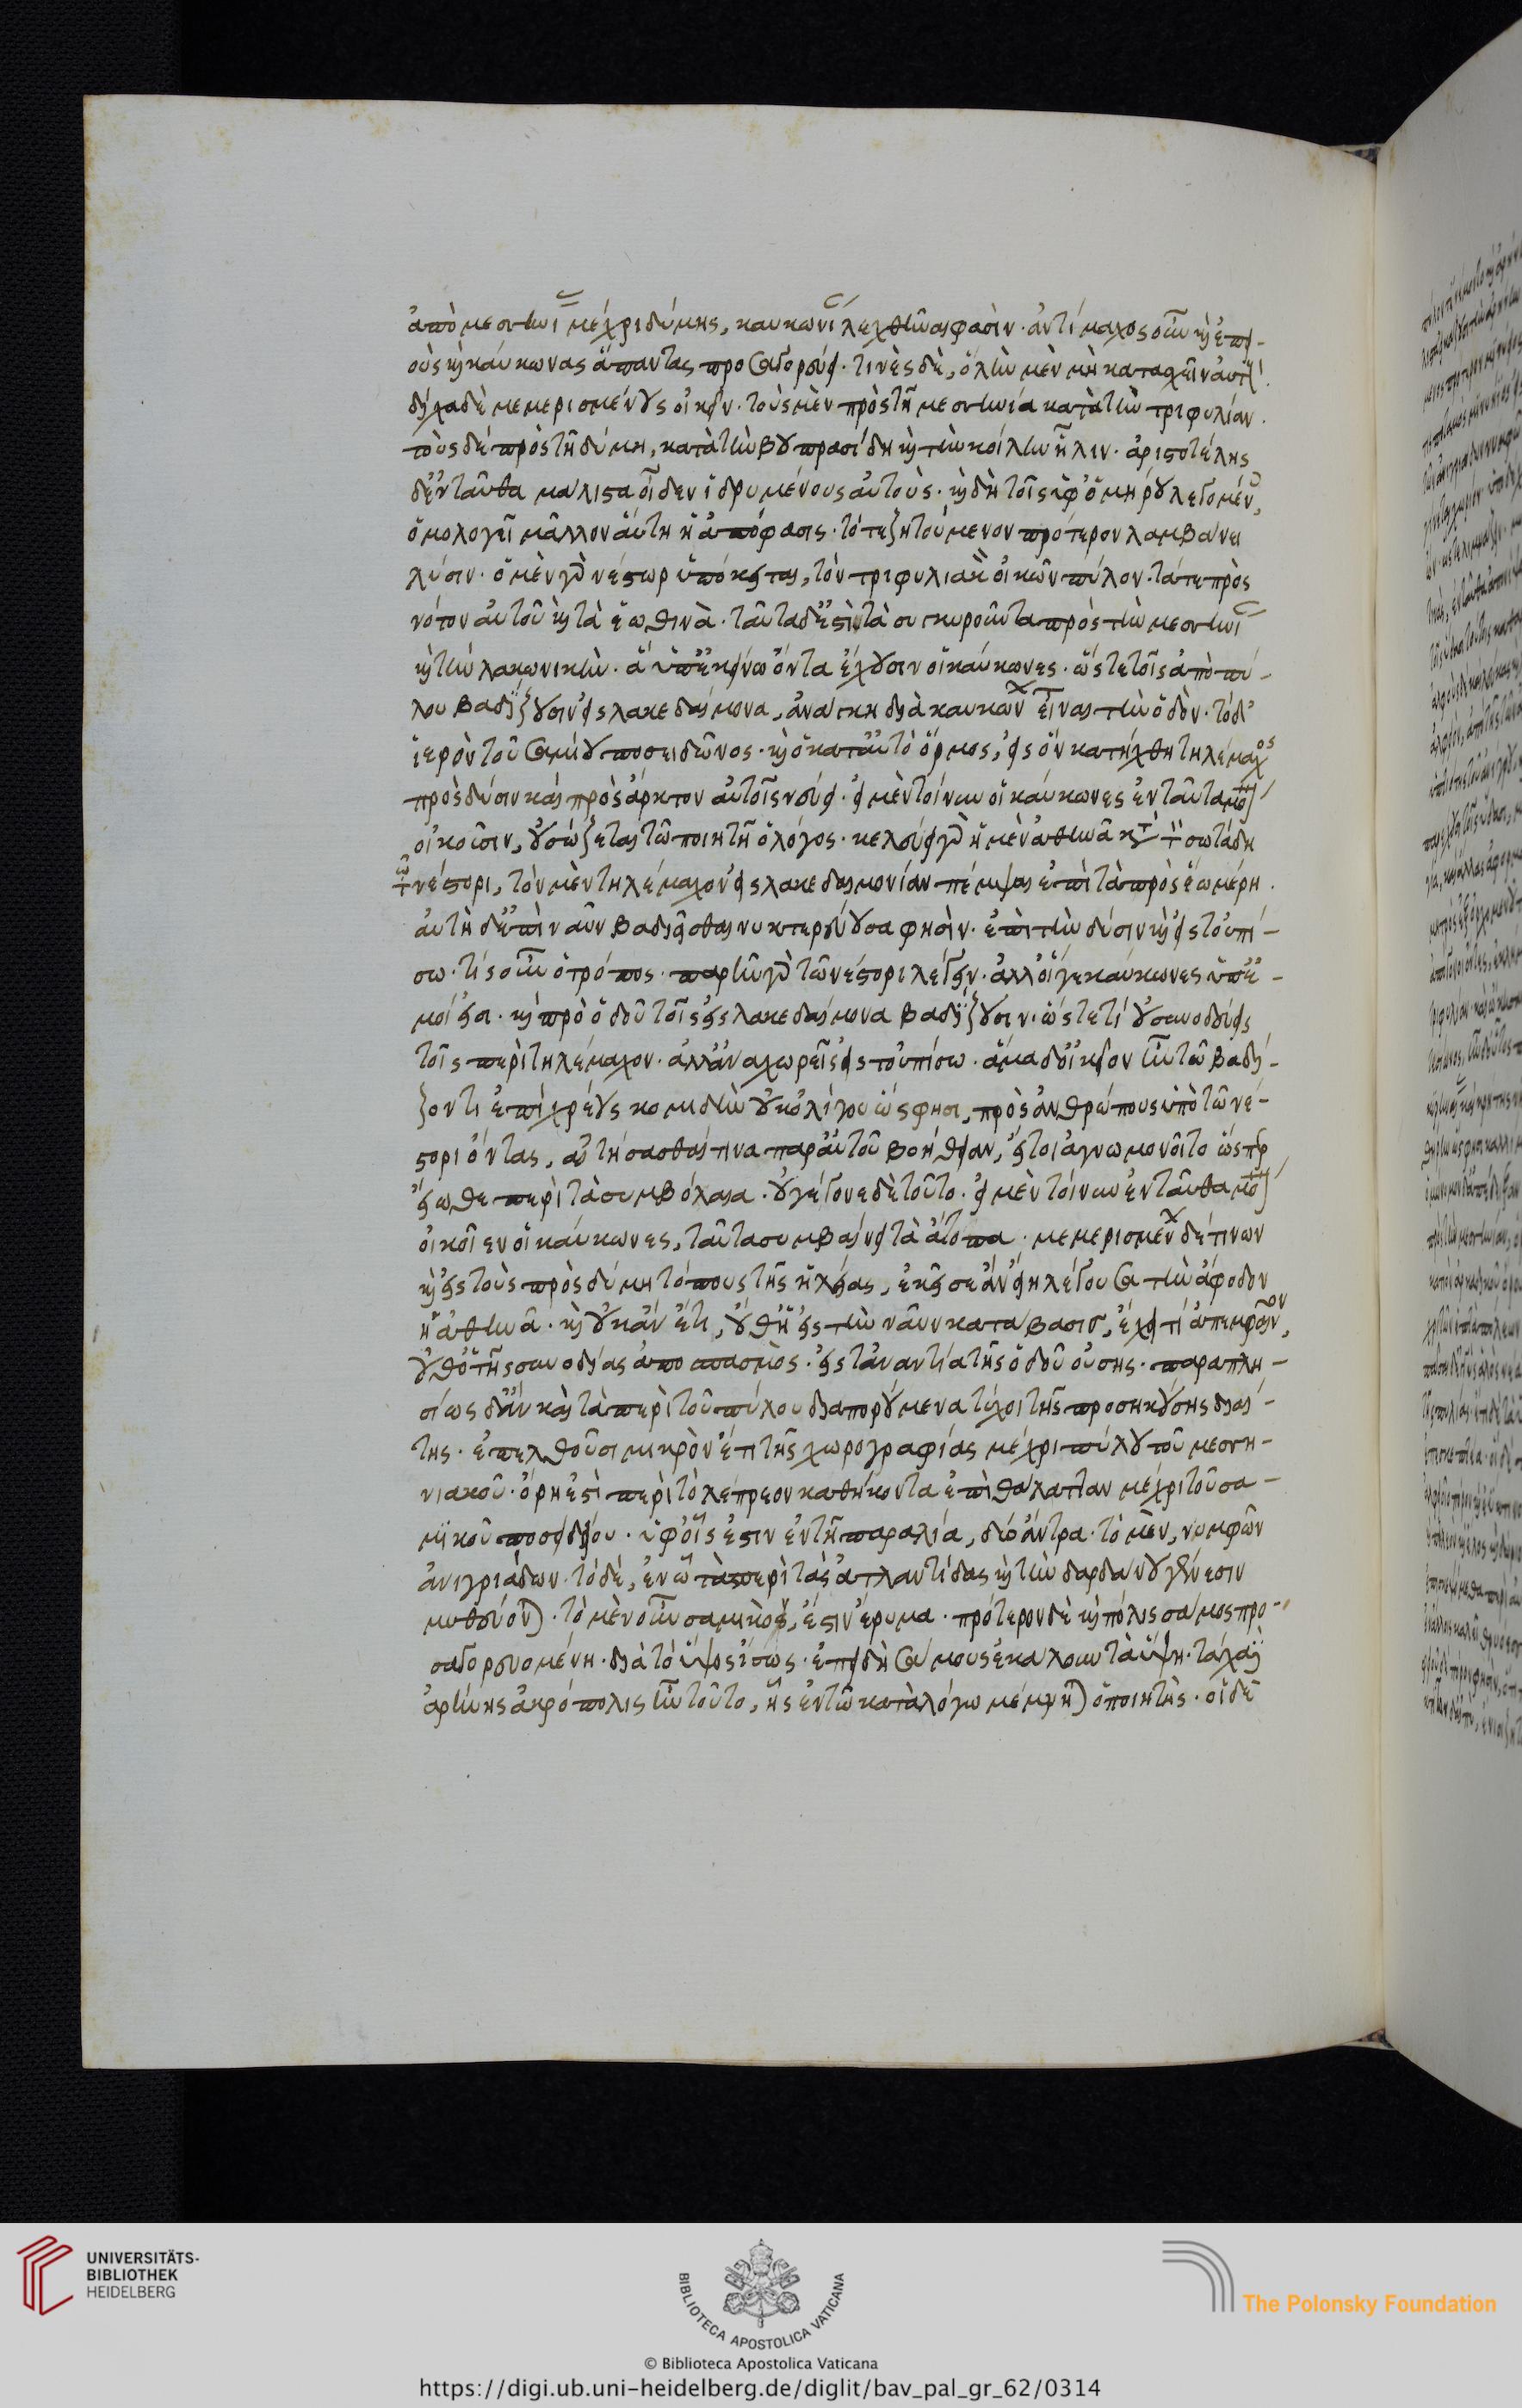 ἀπὸ μεσσην μέχρι δύμης, καυκωνί λεχθῆναι φασὶν· ἀντίμαχος οὖν καὶ ἐπει-
οὺς καὶ καύκωνας ἅπαντας προσαγορεύει· τινὲς δὲ, ὅλην μὲν μὴ κατασχεῖν αὐτοὺς·
δίχα δὲ μεμερισμένους οἰκεῖν· τοὺς μὲν πρὸς τῇ μεσσηνία κατὰ τὴν τριφυλίαν.
τοὺς δὲ πρὸς τῇ δύμη, κατὰ τὴν βουπρασίδη καὶ τὴν κοίλην ἦλιν· ἀριστοτέλης
δ' ἐνταῦθα μάλιστα οἶδεν ἱδρυμένους αὐτοὺς· καὶ δὴ τοῖς ὑφ' ὁμήρου λεγομένοις,
ὁμολογεῖ μᾶλλον αὕτη ἡ ἀπόφασις· τό τε ζητούμενον πρότερον λαμβάνει
λύσιν· ὁ μὲν γὰρ νέστωρ ὑπόκειται, τὸν τριφυλιακὸν οἰκῶν πύλον· τά τε πρὸς
νότον αὐτοῦ καὶ τὰ ἑωθινὰ· ταῦτα δ' ἐστὶ τὰ συγκυροῦντα πρὸς τὴν μεσσην
καὶ τὴν λακωνικὴν· ἃ ὑπ' ἐκείνω ὄντα ἔχουσιν οἱ καύκωνες· ὥστε τοῖς ἀπὸ πύ-
λου βαδίζουσιν εἰς λακεδαίμονα, ἀνάγκη διὰ καυκώνων εἶναι τὴν ὁδὸν· τὸ δ'
ἱερὸν τοῦ σαμίου ποσειδῶνος· καὶ ὁ κατ' αὐτὸ ὅρμος, εἰς ὃν κατήχθη τηλέμαχος
πρὸς δύσιν καὶ πρὸς ἄρκτον αὐτοῖς νεύει· εἰ μὲν τοίνυν οἱ καύκωνες ἐνταῦτα μόνον
οἰκοῦσιν, οὐ σώζεται τῶ ποιητῆ ὁ λόγος· κελεύει γὰρ ἡ μὲν ἀθηνᾶ κατὰ τὸν σωτάδη
τῶ νέστορι, τὸν μὲν τηλέμαχον εἰς λακεδαιμονίαν πέμψαι ἐπὶ τὰ πρὸς ἕω μέρη.
αὐτὴ δ' ἐπὶ ναῦν βαδιεῖσθαι νυκτερεύουσα φησὶν· ἐπὶ τὴν δύσιν καὶ εἰς τοὐπί-
σω· τίς οὖν ὁ τρόπος· παρῆν γὰρ τῶ νέστορι λέγειν· ἀλλ' οἵ γε καύκωνες ὑπ' ἐ-
μοί εἰσι· καὶ πρὸ ὁδοῦ τοῖς εἰς λακεδαίμονα βαδίζουσιν· ὥστε τί οὐ συνοδεύεις
τοῖς περὶ τηλέμαχον· ἀλλ' ἀναχωρεῖς εἰς τοὐπίσω· ἅμα δ' οἰκεῖον ἦν τῶ βαδί-
ζοντι ἐπὶ χρέους κομιδὴν οὐκ ὀλίγου ὥς φησι, πρὸς ἀνθρώπους ὑπὸ τῶ νέ-
στορι ὄντας, αἰτήσασθαί τινα παρ' αὐτοῦ βοήθειαν, εἴ τοι ἀγνωμονοῖτο ὥσπερ
εἴωθε περὶ τὰ συμβόλαια· οὐ γέγονε δὲ τοῦτο· εἰ μὲν τοίνυν ἐνταῦθα μόνον
οἰκοῖεν οἱ καύκωνες, ταῦτα συμβαίνει τὰ ἄτοπα· μεμερισμένων δέ τινων
καὶ εἰς τοὺς πρὸς δύμη τόπους τῆς ἠλείας, ἐκεῖσε ἂν εἴη λέγουσα τὴν ἄφοδον
ἡ ἀθηνᾶ· καὶ οὐκ ἂν ἔτι, οὔθ' ἡ εἰς τὴν ναῦν κατάβασις, ἔχει τί ἀπεμφαῖνον,
οὔθ' ὁ τῆς συνοδίας ἀποσπασμὸς· εἰς τἀναντία τῆς ὁδοῦ οὔσης· παραπλη-
σίως δ' ἂν καὶ τὰ περὶ τοῦ πύλου διαπορούμενα τύχοι τῆς προσηκούσης διαί-
της· ἐπελθοῦσι μικρὸν ἔτι τῆς χωρογραφίας μέχρι πύλου τοῦ μεσση-
νιακοῦ· ὄρη ἐστὶ περὶ τὸ λέπρεον καθήκοντα ἐπὶ θάλατταν μέχρι τοῦ σα-
μικοῦ ποσειδίου· ὑφ' οἷς ἐστιν ἐν τῆ παραλία, δύο ἄντρα· τὸ μὲν, νυμφῶν
ἀνιγριάδων· τὸ δὲ, ἐν ὧ τὰ περὶ τὰς ἀτλαντίδας καὶ τὴν δαρδάνου γένεσιν
μυθεύονται· τὸ μὲν οὖν σαμικὸν, ἔστιν ἔρυμα· πρότερον δὲ καὶ πόλις σάμος προ-
σαγορευομένη· διὰ τὸ ὕψος ἴσως· ἐπειδὴ σάμους ἐκάλουν τὰ ὕψη· τάχα δὲ
ἀρήνης ἀκρόπολις ἦν τοῦτο, ἧς ἐν τῶ καταλόγω μέμνηται ὁ ποιητὴς· οἱ δὲ
UNIVERSITÄTS-
BIBLIOTHEK
HEIDELBERG
BIBLIOTECA APOSTOLICA VATICANA
The Polonsky Foundation
© Biblioteca Apostolica Vaticana
https://digi.ub.uni-heidelberg.de/diglit/bav_pal_gr_62/0314